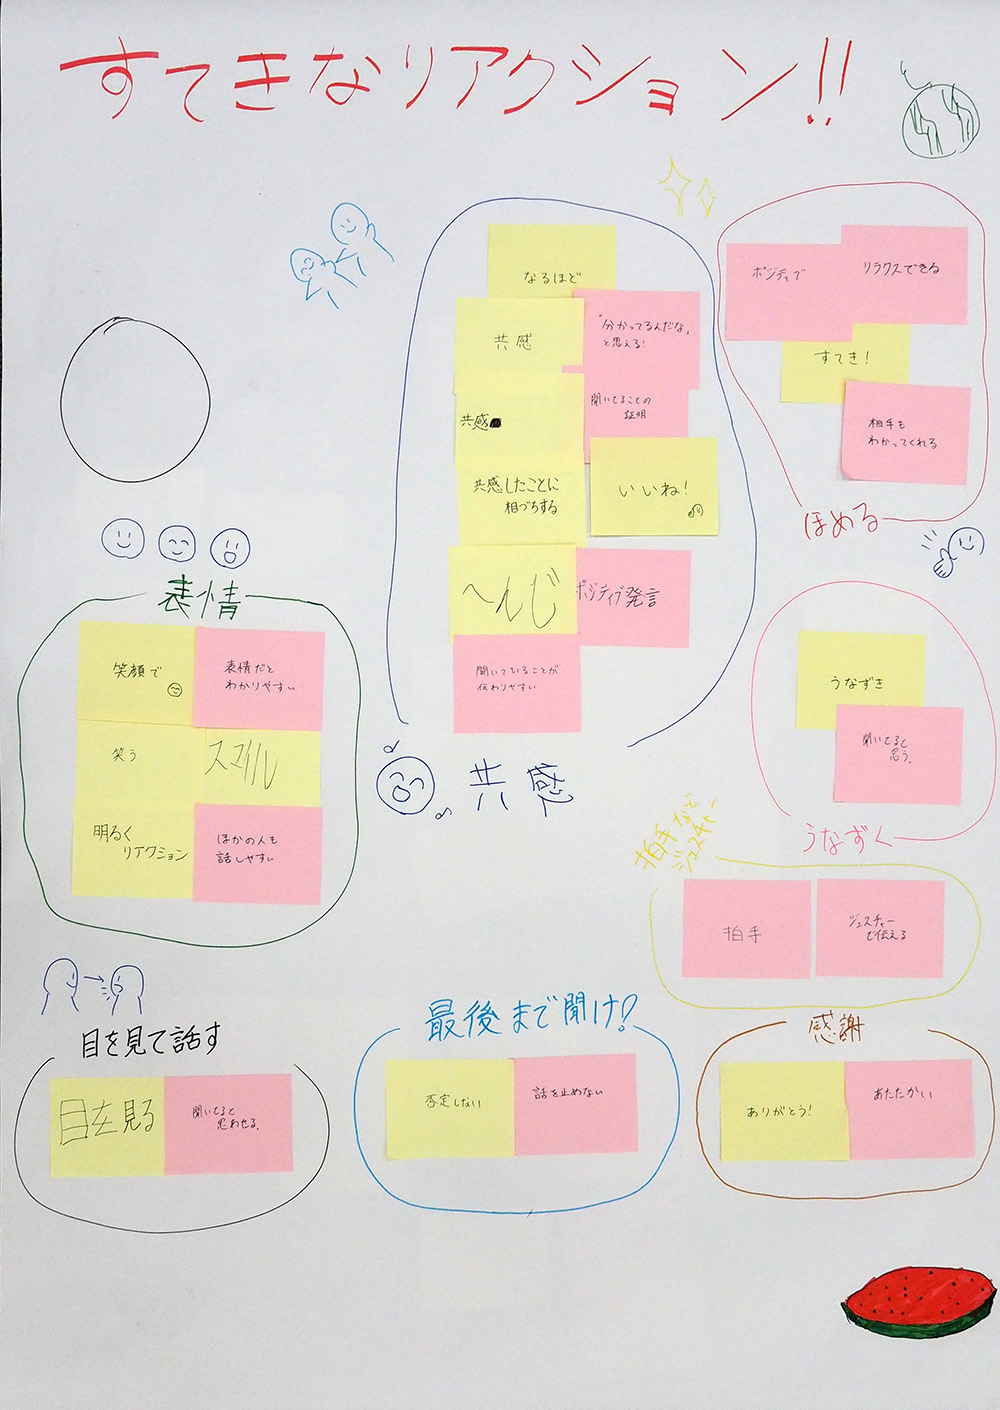 すてきなリアクション!!
なるほど
共感
「分かってるんだな」
と思える!
共感
聞いてることの
証明
共感したことに
相づちする
いいね!
へんじ
ポジティブ発言
聞いていることが
伝わりやすい
共感
ポジティブ
リラクスできる
すてき!
相手も
わかってくれる
ほめる
表情
笑顔で
表情だと
わかりやすい
笑う
スマイル
明るく
リアクション
ほかの人も
話しやすい
うなずき
聞いてると
思う。
うなずく
拍手など
ジェスチャー
拍手
ジェスチャー
で伝える
目を見て話す
目を見る
聞いてると
思わせる。
最後まで聞け!
否定しない
話を止めない
感謝
ありがとう!
あたたかい